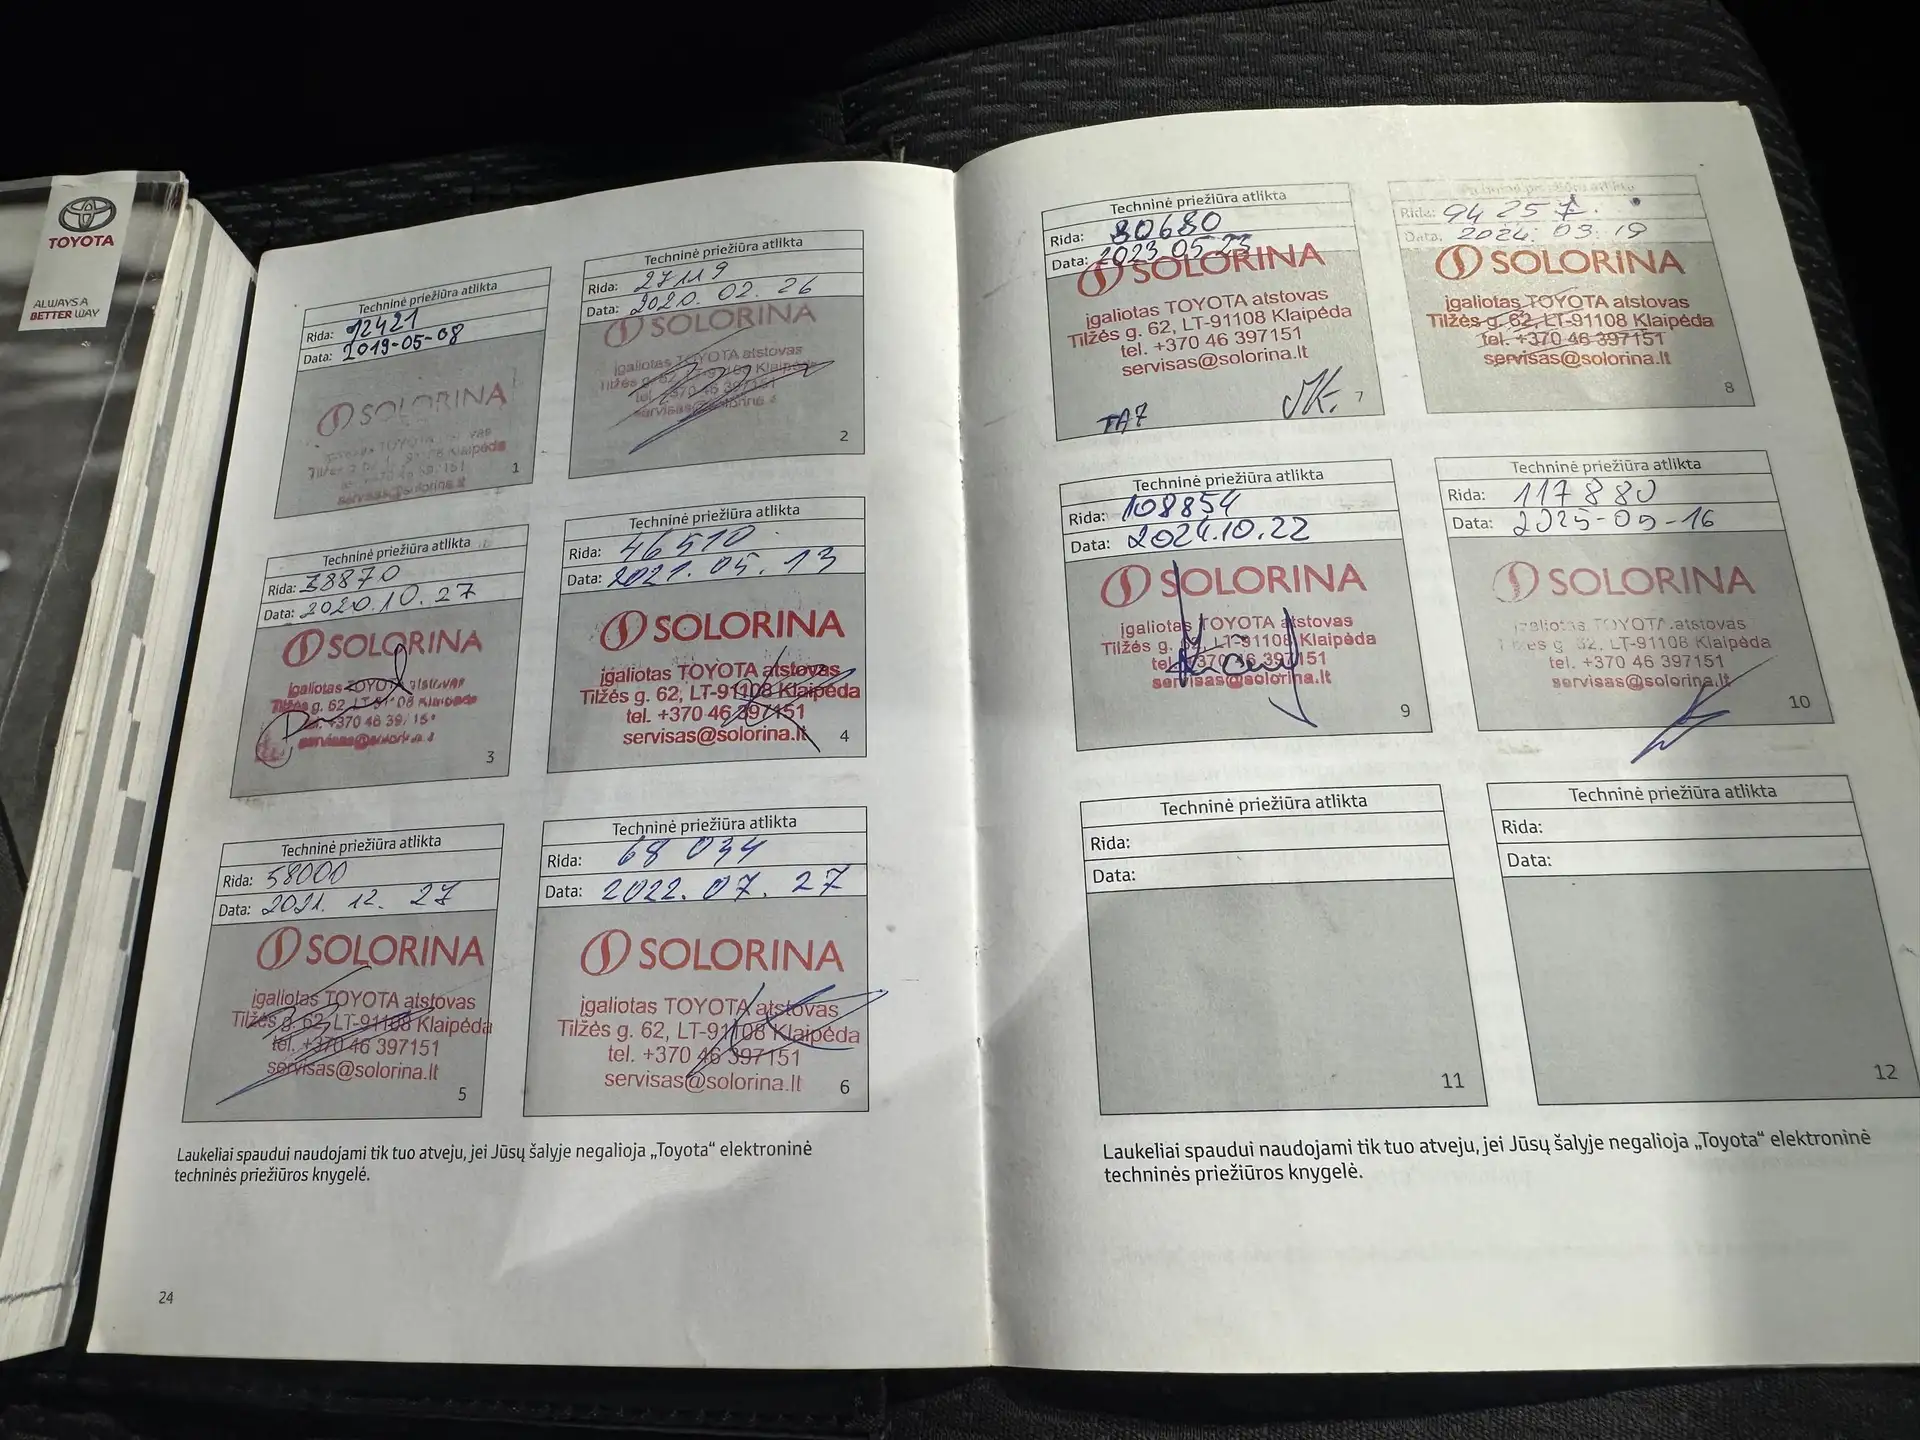 TOYOTA
ALWAYS A
BETTER WAY
Techninė priežiūra atlikta
Rida: 12421
Data: 2019-05-08
SOLORINA
servisas@solorina.lt
1
Techninė priežiūra atlikta
Rida: 27119
Data: 2020. 02. 26
SOLORINA
įgaliotas TOYOTA atstovas
Tilžės g. 62, LT-91108 Klaipėda
tel. +370 46 397151
servisas@solorina.lt
2
Techninė priežiūra atlikta
Rida: 38870
Data: 2020.10.27
SOLORINA
įgaliotas TOYOTA atstovas
Tilžės g. 62, LT-91108 Klaipėda
servisas@solorina.lt
3
Techninė priežiūra atlikta
Rida: 46510
Data: 2021. 05. 13
SOLORINA
įgaliotas TOYOTA atstovas
Tilžės g. 62, LT-91108 Klaipėda
tel. +370 46 397151
servisas@solorina.lt
4
Techninė priežiūra atlikta
Rida: 58000
Data: 2021. 12. 27
SOLORINA
įgaliotas TOYOTA atstovas
Tilžės g. 62, LT-91108 Klaipėda
tel. +370 46 397151
servisas@solorina.lt
5
Techninė priežiūra atlikta
Rida: 68 034
Data: 2022. 07. 27
SOLORINA
įgaliotas TOYOTA atstovas
Tilžės g. 62, LT-91108 Klaipėda
tel. +370 46 397151
servisas@solorina.lt
6
Laukeliai spaudui naudojami tik tuo atveju, jei Jūsų šalyje negalioja „Toyota“ elektroninė
techninės priežiūros knygelė.
24
Techninė priežiūra atlikta
Rida: 80680
Data: 2023.05.23
SOLORINA
įgaliotas TOYOTA atstovas
Tilžės g. 62, LT-91108 Klaipėda
tel. +370 46 397151
servisas@solorina.lt
TA7
7
Techninė priežiūra atlikta
Rida: 94 257.
Data: 2024. 03. 19
SOLORINA
įgaliotas TOYOTA atstovas
Tilžės g. 62, LT-91108 Klaipėda
tel. +370 46 397151
servisas@solorina.lt
8
Techninė priežiūra atlikta
Rida: 108854
Data: 2024.10.22
SOLORINA
įgaliotas TOYOTA atstovas
Tilžės g. 62, LT-91108 Klaipėda
tel. +370 46 397151
servisas@solorina.lt
9
Techninė priežiūra atlikta
Rida: 117880
Data: 2025-09-16
SOLORINA
įgaliotas TOYOTA atstovas
Tilžės g. 62, LT-91108 Klaipėda
tel. +370 46 397151
servisas@solorina.lt
10
Techninė priežiūra atlikta
Rida:
Data:
11
Techninė priežiūra atlikta
Rida:
Data:
12
Laukeliai spaudui naudojami tik tuo atveju, jei Jūsų šalyje negalioja „Toyota“ elektroninė
techninės priežiūros knygelė.